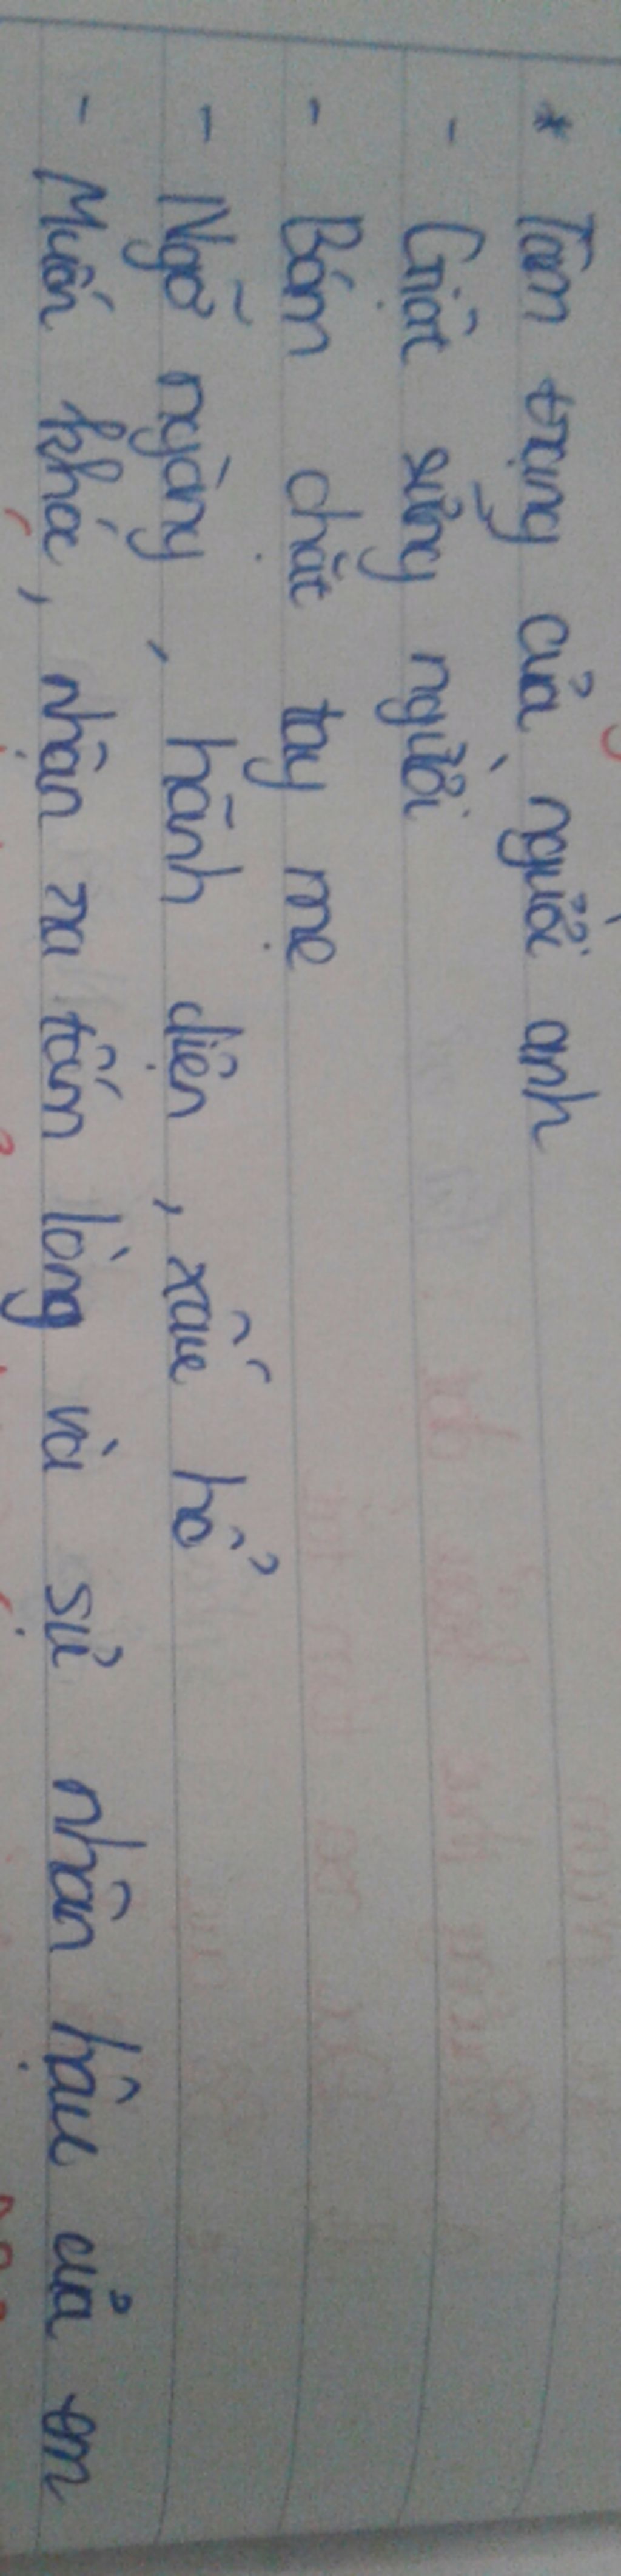 * Tâm trạng của người anh
- Giật sững người
- Bám chặt tay mẹ
- Ngỡ ngàng, hãnh diện, xấu hổ
- Muốn khóc, nhận ra tấm lòng và sử nhân hậu của em